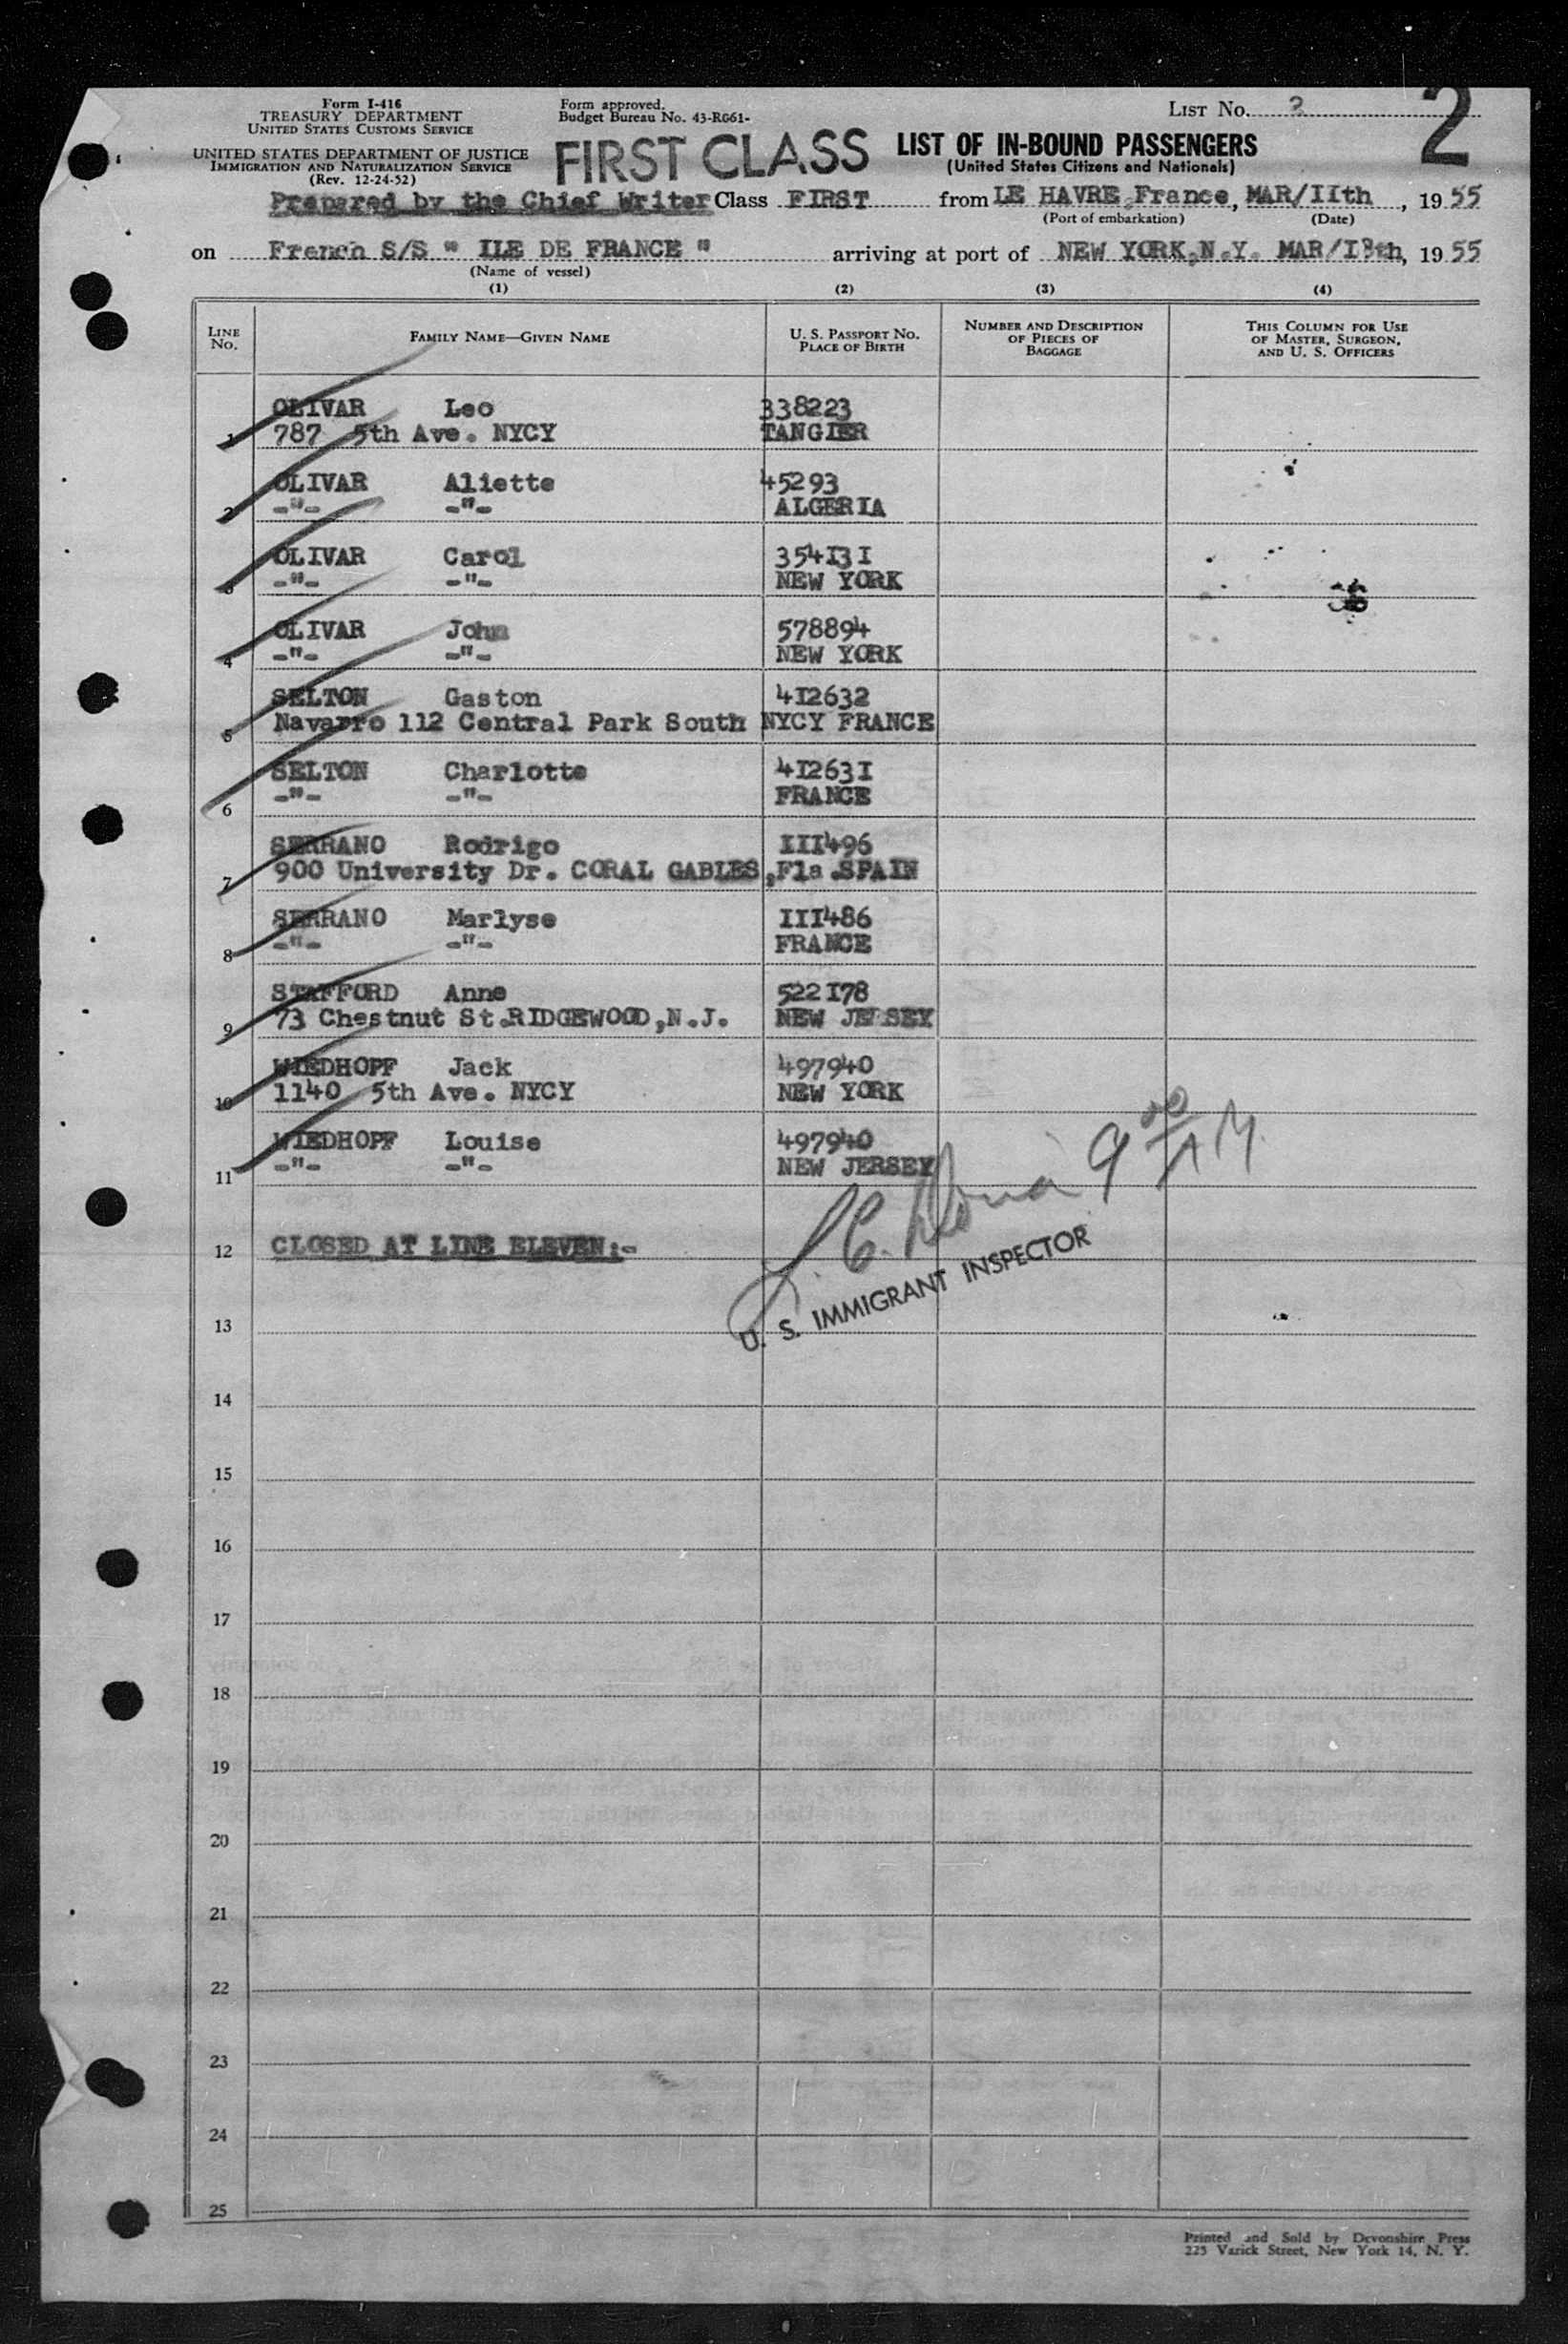 Form I-416
TREASURY DEPARTMENT
UNITED STATES CUSTOMS SERVICE
UNITED STATES DEPARTMENT OF JUSTICE
IMMIGRATION AND NATURALIZATION SERVICE
(Rev. 12-24-52)
Form approved.
Budget Bureau No. 43-RG61-
FIRST CLASS
LIST No. 2
LIST OF IN-BOUND PASSENGERS
(United States Citizens and Nationals)
Prepared by the Chief Writer Class FIRST from LE HAVRE, France, MAR/IIth, 1955
(Port of embarkation) (Date)
on French S/S " ILE DE FRANCE " arriving at port of NEW YORK, N.Y. MAR/I8th, 1955
(Name of vessel)
(1) (2) (3) (4)
LINE No. FAMILY NAME—GIVEN NAME U. S. PASSPORT No. PLACE OF BIRTH NUMBER AND DESCRIPTION OF PIECES OF BAGGAGE THIS COLUMN FOR USE OF MASTER, SURGEON, AND U. S. OFFICERS
OLIVAR Leo 338223
1 787 5th Ave. NYCY TANGIER
OLIVAR Aliette 45293
2 -"- -"- ALGERIA
OLIVAR Carol 354I3I
3 -"- -"- NEW YORK
OLIVAR John 578894
4 -"- -"- NEW YORK
SELTON Gaston 4I2632
5 Navarro 112 Central Park South NYCY FRANCE
SELTON Charlotte 4I263I
6 -"- -"- FRANCE
SERRANO Rodrigo III496
7 900 University Dr. CORAL GABLES, Fla. SPAIN
SERRANO Marlyse III486
8 -"- -"- FRANCE
STAFFORD Anne 522I78
9 73 Chestnut St. RIDGEWOOD, N.J. NEW JERSEY
WIEDHOPF Jack 497940
10 1140 5th Ave. NYCY NEW YORK
WIEDHOPF Louise 497940
11 -"- -"- NEW JERSEY
9 00 AM
12 CLOSED AT LINE ELEVEN:-
U. S. IMMIGRANT INSPECTOR
13
14
15
16
17
18
19
20
21
22
23
24
25
Printed and Sold by Devonshire Press
225 Varick Street, New York 14, N. Y.